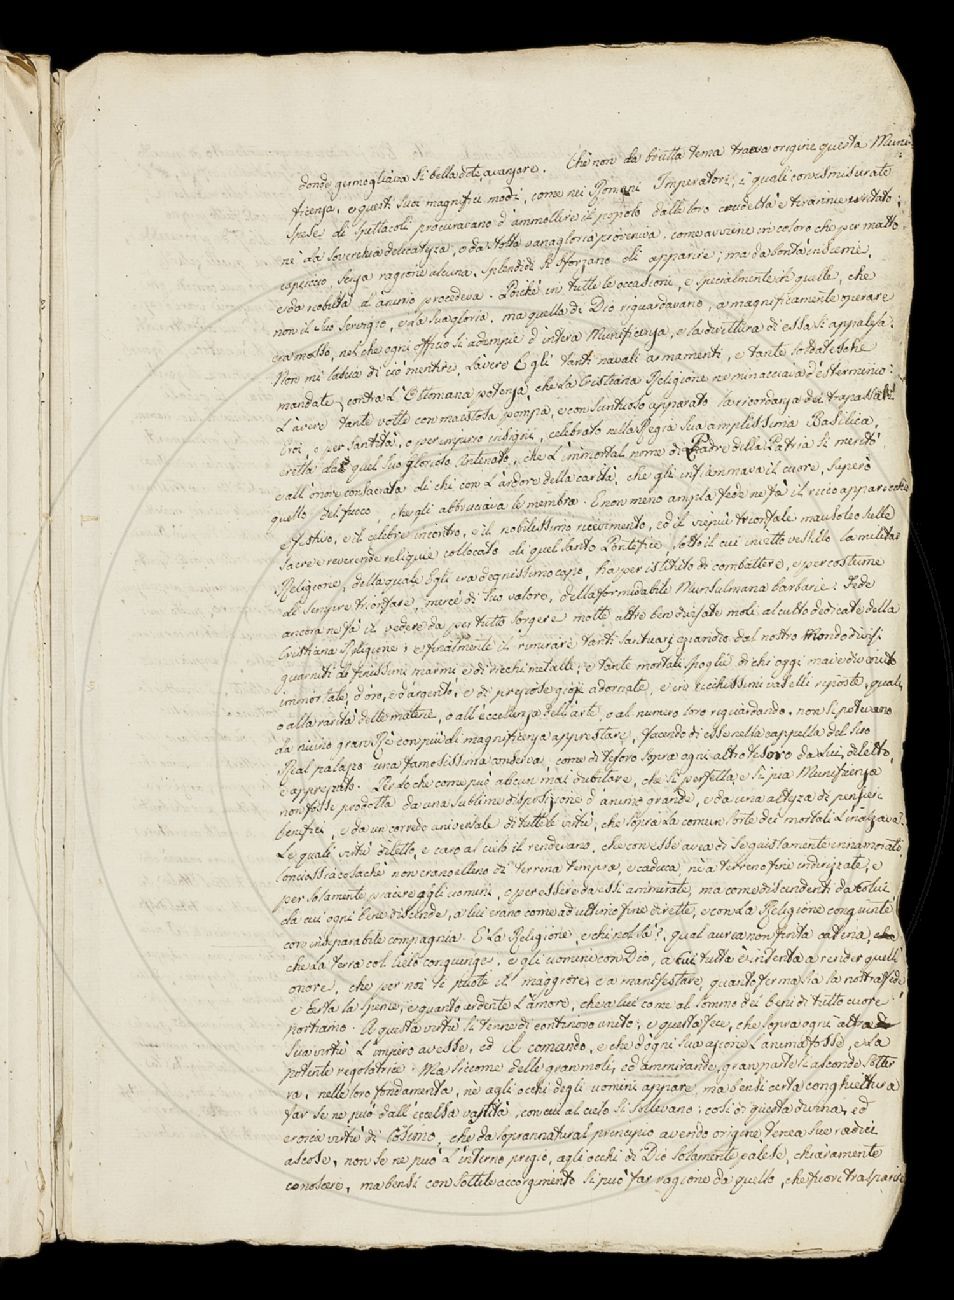 donde germogliava sì bella dote, avanzare. Chè non da brutta tema traeva origine questa Muni-
ficenza, e questi suoi magnifici modi, come nei Romani Imperatori, i quali con smisurate
spese di spettacoli procuravano d'ammollire il popolo dalle loro crudeltà e tirannie irritato;
nè da soverchia delicatezza, o da stolta vanagloria proveniva, come avviene in coloro che per matto
capriccio, senza ragione alcuna, splendidi si sforzano di apparire; ma da bontà insieme,
e da nobiltà d'animo procedeva. Poichè in tutte le occasioni, e specialmente in quelle, che
non il suo servigio, e la sua gloria, ma quella di Dio riguardavano, a magnificamente operare
era mosso, nel che ogni officio si adempie d'intera Munificenza, e la direttura di essa si appalesa.
Non mi lascia di ciò mentire, l'avere Egli tanti navali armamenti, e tante soldatesche
mandate contra l'Ottomana potenza, che la Cristiana Religione ne minacciava d'esterminio:
L'avere tante volte con maestosa pompa, e con suntuoso apparato la ricordanza dei trapassati
Eroi, e per santità, o per imperio insigni, celebrato nella Regia sua amplissima Basilica,
eretta da quel suo glorioso Antenato, che l'immortal nome di Padre della Patria si meritò
e all'onore consacrata di chi con l'ardore della carità, che gli infiammava il cuore, superò
quello del fuoco che gli abbruciava le membra. E non meno ampla fede ne fa il ricco apparecchio
e festivo, e il celebre incontro, e il nobilissimo ricevimento, ed il vie più trionfale mausoleo sulle
sacre e reverende reliquie collocato di quel Santo Pontefice, sotto il cui invitto vessillo la militar
Religione, della quale Egli era degnissimo capo, ha per istituto di combattere, e per costume
di sempre trionfare, mercè di suo valore, della formidabile Munsulmana barbarie: Fede
ancora ne fa il vedere da per tutto sorgere molte altre ben divisate moli al culto dedicate della
Cristiana Religione; e finalmente il rimirare tanti santuarj quando dal nostro Mondo divisi
guarniti di finissimi marmi e di ricchi metalli; e tante mortali spoglie di chi oggi mai è divenuto
immortale, d'oro, e d'argento, e di preziose gioje adornate, e in ricchissimi vaselli riposte, quali,
o alla rarità delle materie, o all'eccellenza dell'arte, o al numero loro riguardando, non si potevano
da niuno gran Rè con più di magnificenza apprestare, facendo di esse nella cappella del suo
Real palazzo una famosissima conserva, come di tesoro sopra ogni altro tesoro da Lui diletto,
e apprezzato. Per lo che come può alcun mai dubitare, che sì perfetta e sì pia Munificenza
non fosse prodotta da una sublime disposizione d'animo grande, e da una altezza di pensieri
benefici, e da un corredo universale di tutte le virtù, che sopra la comun sorte dei mortali l'inalzava?
Le quali virtù diletto, e caro al cielo il rendevano, che con esse avea di se giustamente innamorato,
conciossiacosachè non erano elleno di terrena tempra, e caduca, nè a terreno fine indirizzate, e
per solamente piacere agli uomini, e per essere da essi ammirate, ma come discendenti da colui
da cui ogni bene discende, a lui erano come ad ultimo fine dirette, e con la Religione congiunte
con inseparabile compagnia. E la Religione, e chi nol sà?, qual aurea non finta catena,
che la terra col cielo congiunge, e gli uomini con Dio, a cui tutta è intenta a render quell'
onore, che per noi si puote il maggiore, e a manifestare, quanto ferma sia la nostra fede
e certa la speme, e quanto ardente l'amore, che a lui come al sommo dei beni di tutto cuore
portiamo. A questa virtù si tenne di continovo unito; e questa fece, che sopra ogni altra
sua virtù l'impero avesse, ed il comando, e che d'ogni sua azione l'anima fosse, e la
potente regolatrice. Ma siccome delle gran moli, ed ammirande, gran parte si asconde sotter
ra, nelle loro fondamenta, nè agli occhi degli uomini appare, ma bensì certa conghiettura
far se ne può dall'eccelsa vastità, con cui al cielo si sollevano; così di questa divina, ed
eroica virtù di Cosimo, che da soprannatural principio avendo origine tenea sue radici
ascose, non se ne può l'interno pregio, agli occhi di Dio solamente palese, chiaramente
conoscere, ma bensì con sottile accorgimento si può far ragione da quello, che fuore trasparisce